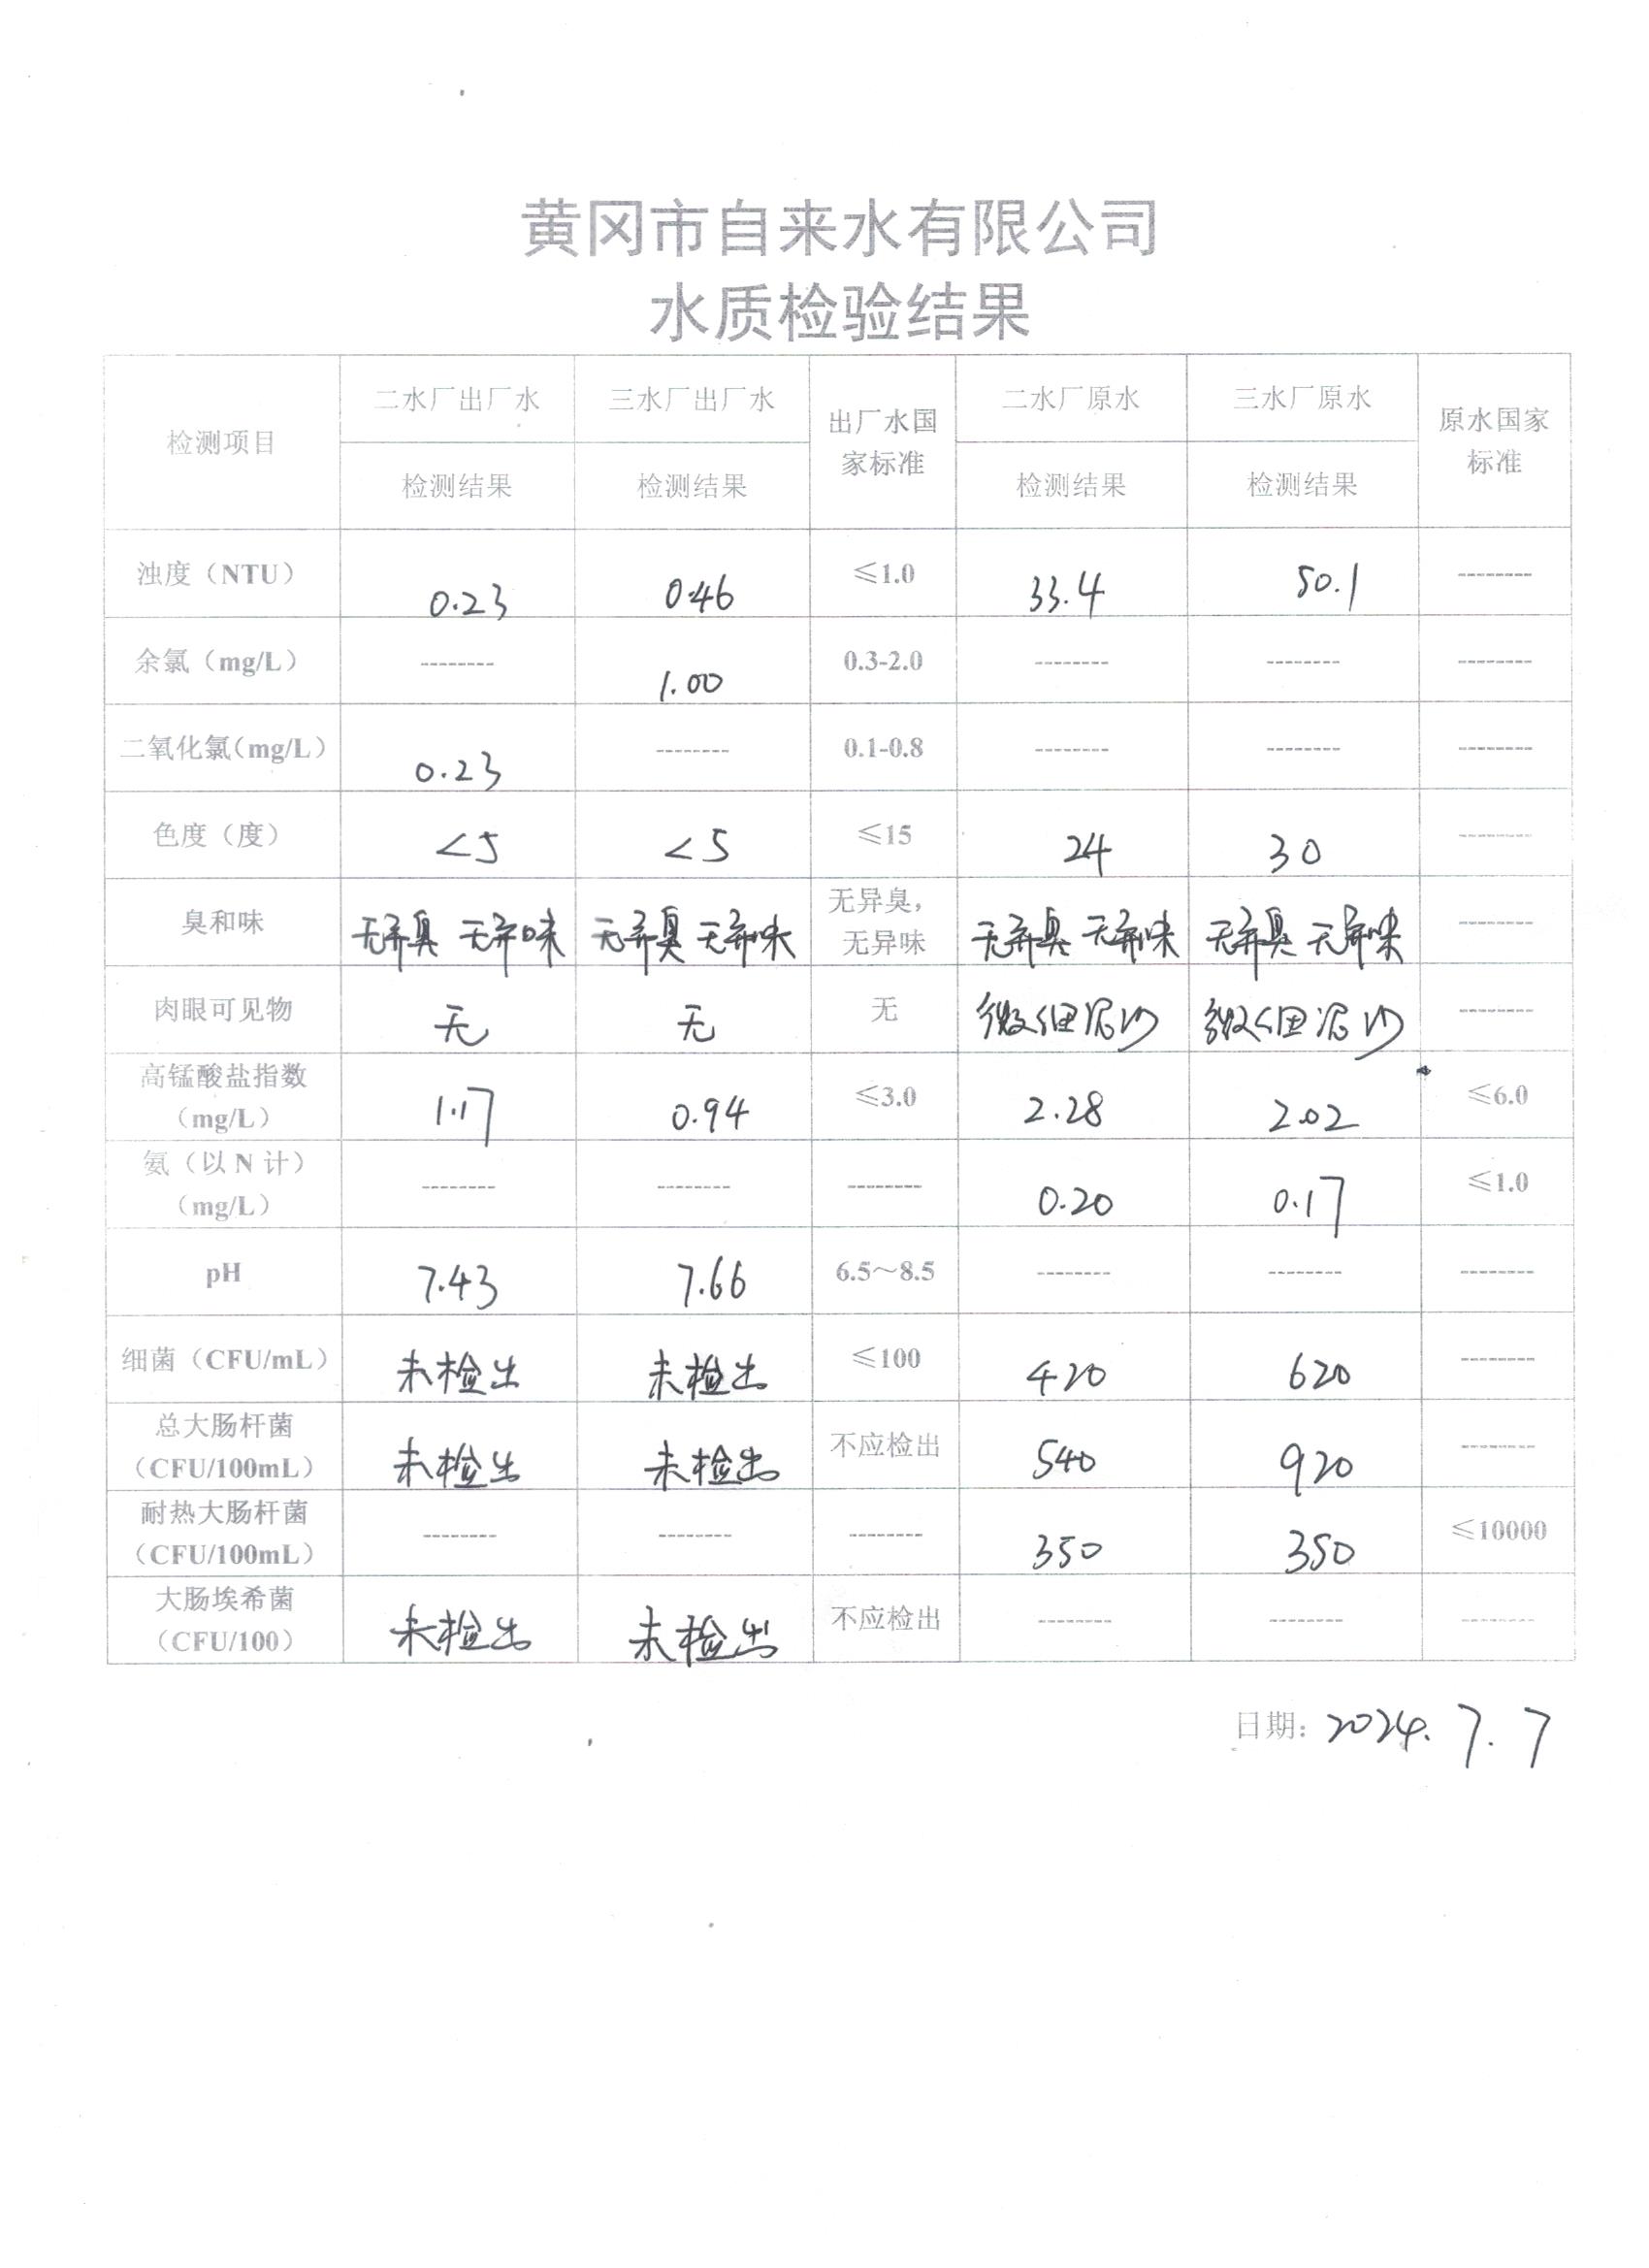 黄冈市自来水有限公司
水质检验结果
检测项目 二水厂出厂水 三水厂出厂水 出厂水国家标准 二水厂原水 三水厂原水 原水国家标准
检测结果 检测结果 检测结果 检测结果
浊度（NTU） 0.23 0.46 ≤1.0 33.4 50.1 --------
余氯（mg/L） -------- 1.00 0.3-2.0 -------- -------- --------
二氧化氯（mg/L） 0.23 -------- 0.1-0.8 -------- -------- --------
色度（度） <5 <5 ≤15 24 30 --------
臭和味 无异臭 无异味 无异臭 无异味 无异臭，无异味 无异臭 无异味 无异臭 无异味 --------
肉眼可见物 无 无 无 微细泥沙 微细泥沙 --------
高锰酸盐指数（mg/L） 1.17 0.94 ≤3.0 2.28 2.02 ≤6.0
氨（以 N 计）（mg/L） -------- -------- -------- 0.20 0.17 ≤1.0
pH 7.43 7.66 6.5～8.5 -------- -------- --------
细菌（CFU/mL） 未检出 未检出 ≤100 420 620 --------
总大肠杆菌（CFU/100mL） 未检出 未检出 不应检出 540 920 --------
耐热大肠杆菌（CFU/100mL） -------- -------- -------- 350 350 ≤10000
大肠埃希菌（CFU/100） 未检出 未检出 不应检出 -------- -------- --------
日期：2024.7.7